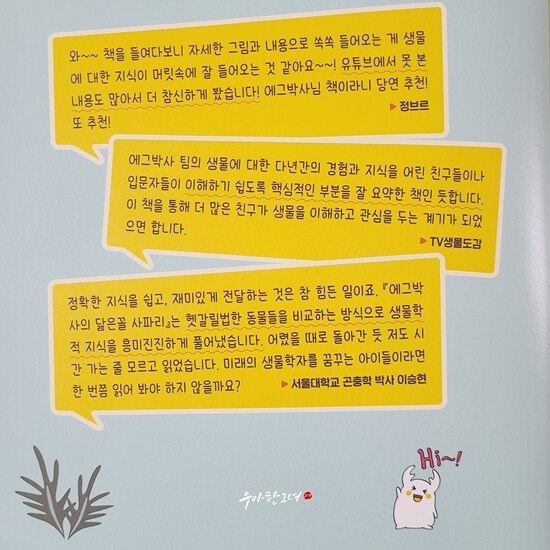 와~~ 책을 들여다보니 자세한 그림과 내용으로 쏙쏙 들어오는 게 생물
에 대한 지식이 머릿속에 잘 들어오는 것 같아요~~! 유튜브에서 못 본
내용도 많아서 더 참신하게 봤습니다! 에그박사님 책이라니 당연 추천!
또 추천!
▶ 정브르
에그박사 팀의 생물에 대한 다년간의 경험과 지식을 어린 친구들이나
입문자들이 이해하기 쉽도록 핵심적인 부분을 잘 요약한 책인 듯합니다.
이 책을 통해 더 많은 친구가 생물을 이해하고 관심을 두는 계기가 되었
으면 합니다.
▶ TV생물도감
정확한 지식을 쉽고, 재미있게 전달하는 것은 참 힘든 일이죠. 『에그박
사의 닮은꼴 사파리』는 헷갈릴법한 동물들을 비교하는 방식으로 생물학
적 지식을 흥미진진하게 풀어냈습니다. 어렸을 때로 돌아간 듯 저도 시
간 가는 줄 모르고 읽었습니다. 미래의 생물학자를 꿈꾸는 아이들이라면
한 번쯤 읽어 봐야 하지 않을까요?
▶ 서울대학교 곤충학 박사 이승현
Hi~!
우아한그녀